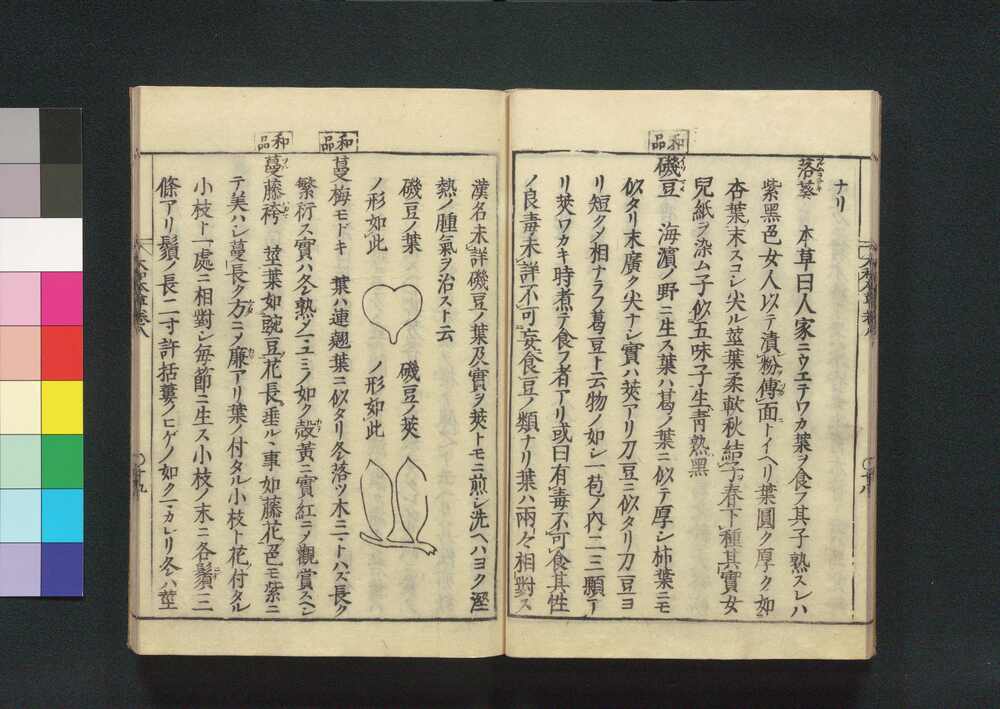 ナリ
落葵 本草曰人家ニウエテワカ葉ヲ食フ其子熟スレハ
紫黑色女人以テ漬粉傳面トイヘリ葉圓ク厚ク如
杏葉末スコシ尖ル莖葉柔軟秋結子春下種其實女
兒紙ヲ染ム子似五味子生青熟黑
和品
磯豆 海濱ノ野ニ生ス葉ハ葛ノ葉ニ似テ厚シ柿葉ニモ
似タリ末廣ク尖ナシ實ハ莢アリ刀豆ニ似タリ刀豆ヨ
リ短クノ相ナラフ葛豆ト云物ノ如シ一苞ノ內二三顆アリ
莢ワカキ時煮テ食フ者アリ或曰有毒不可食其性
ノ良毒未詳不可妄食豆ノ類ナリ葉ハ兩々相對ス
大和本草卷八
○十八
漢名未詳磯豆ノ葉及實ヲ莢トモニ煎シ洗ヘハヨク溼
熱ノ腫氣ヲ治スト云
磯豆ノ葉 磯豆ノ莢
ノ形如此 ノ形如此
和品
蔓梅モドキ 葉ハ連翹葉ニ似タリ冬落ツ木ニマトハズ長ク
繁衍ス實ハ冬熟ソマユミノ如ク殼黃ニ實紅ニノ觀賞スヘシ
和品
蔓藤袴 莖葉如豌豆花長垂ル事如藤花色モ紫ニ
テ美ハシ蔓長ク方ニノ廉アリ葉ノ付タル小枝ト花付タル
小枝ト一處ニ相對シ每節ニ生ス小枝ノ末ニ各鬚三
條アリ鬚ノ長二寸許括蔞ノヒゲノ如ククカレリ冬ハ莖
大和本草卷八
○十九